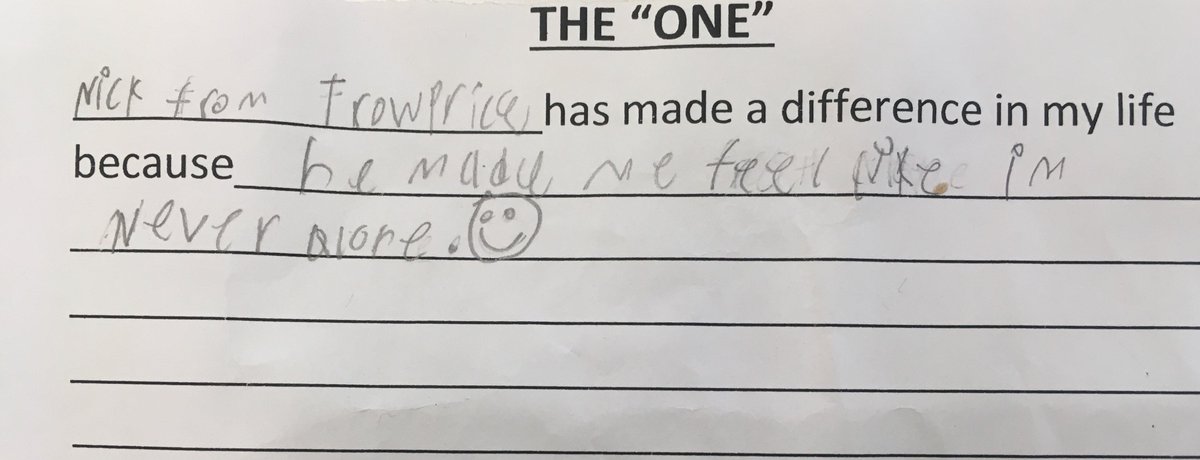 THE “ONE”
Nick from Trowprice has made a difference in my life
because he made me feel like im
Never alone.